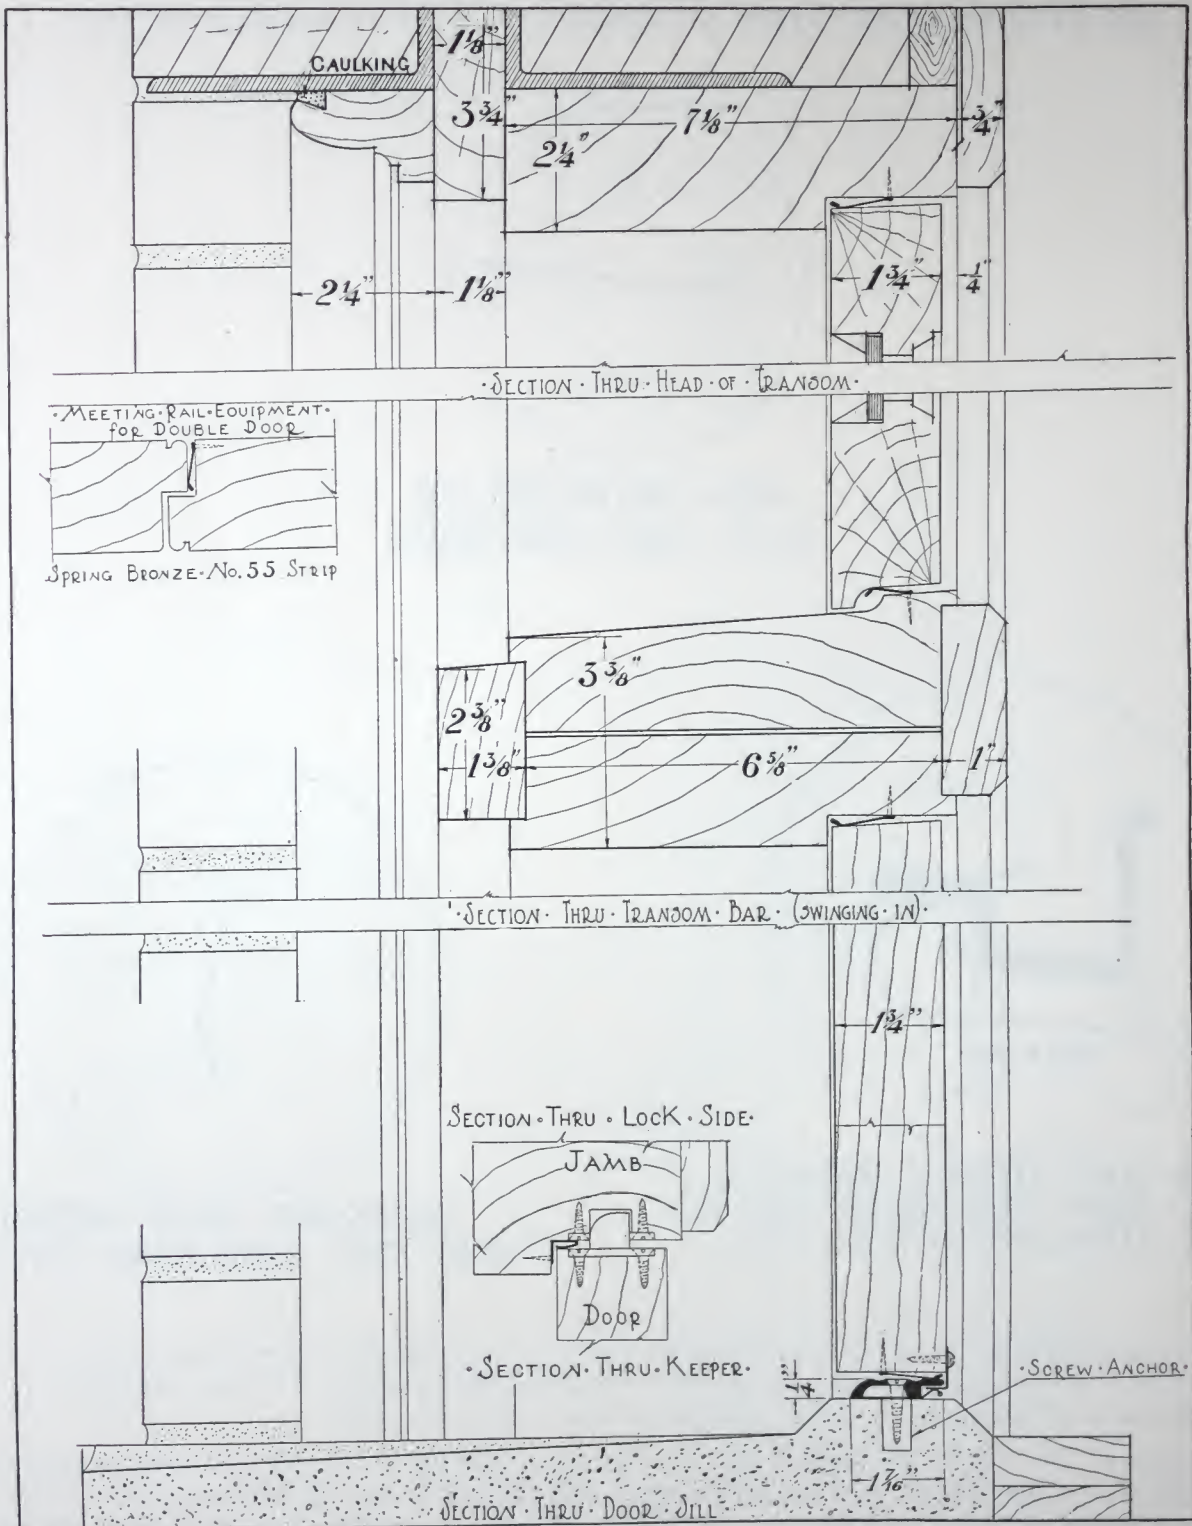 1 1/8"
CAULKING
3 3/4"
7 1/8"
3/4"
2 1/4"
1 3/4"
1/4"
2 1/4"
1 1/8"
·SECTION·THRU·HEAD·OF·TRANSOM·
·MEETING·RAIL·EQUIPMENT·
for DOUBLE DOOR
SPRING BRONZE·No. 55 STRIP
3 3/8"
2 3/8"
1 3/8"
6 5/8"
1"
·SECTION·THRU·TRANSOM·BAR·(SWINGING·IN)·
1 3/4"
SECTION·THRU·LOCK·SIDE·
JAMB
DOOR
·SECTION·THRU·KEEPER·
1/4"
·SCREW·ANCHOR·
1 7/16"
SECTION·THRU·DOOR·SILL